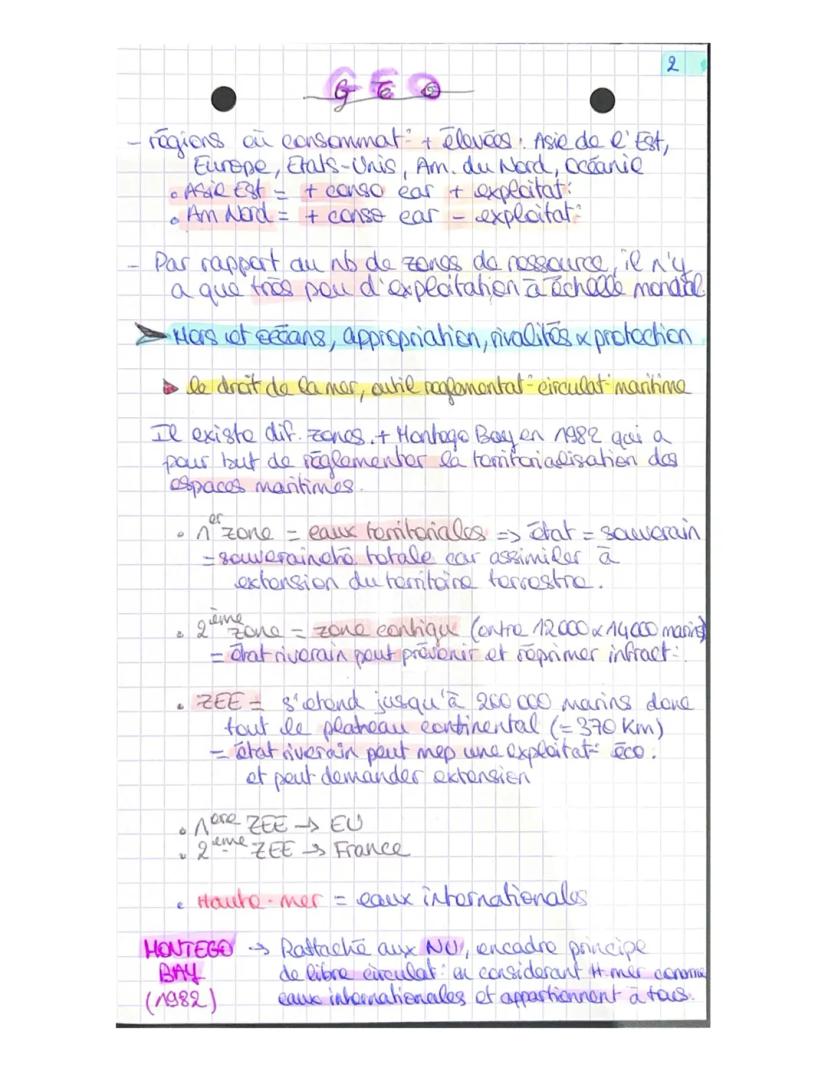 2
GEO
- régions où consommat° + élevées : Asie de l'Est,
Europe, Etats-Unis, Am. du Nord, Océanie
• Asie Est = + conso car + exploitat°
• Am Nord = + conso car - exploitat°
- Par rapport au nb de zones de ressource, il n'y
a que très peu d'exploitation à échelle mondial
➤ Mers et océans, appropriation, rivalités & protection
▸ le droit de la mer, outil reglemental° circulat° maritime
Il existe dif. zones. + Montego Bay en 1982 qui a
pour but de réglementer la territorialisation des
espaces maritimes.
• 1er zone = eaux territoriales => état = souverain
= souveraineté totale car assimiler à
extension du territoire terrestre.
• 2ème zone = zone contigue (entre 12 000 & 14 000 marins)
= état riverain peut prévenir et réprimer infract°.
• ZEE = s'etend jusqu'à 200 000 marins donc
tout le plateau continental (= 370 Km)
= état riverain peut mep une exploitat° éco.
et peut demander extension
• 1ère ZEE → EU
• 2ème ZEE → France
• Haute-mer = eaux internationales
MONTEGO → Rattaché aux NU, encadre principe
BAY de libre circulat° en considerant H-mer comme
(1982) eaux internationales et appartiennent à tous.